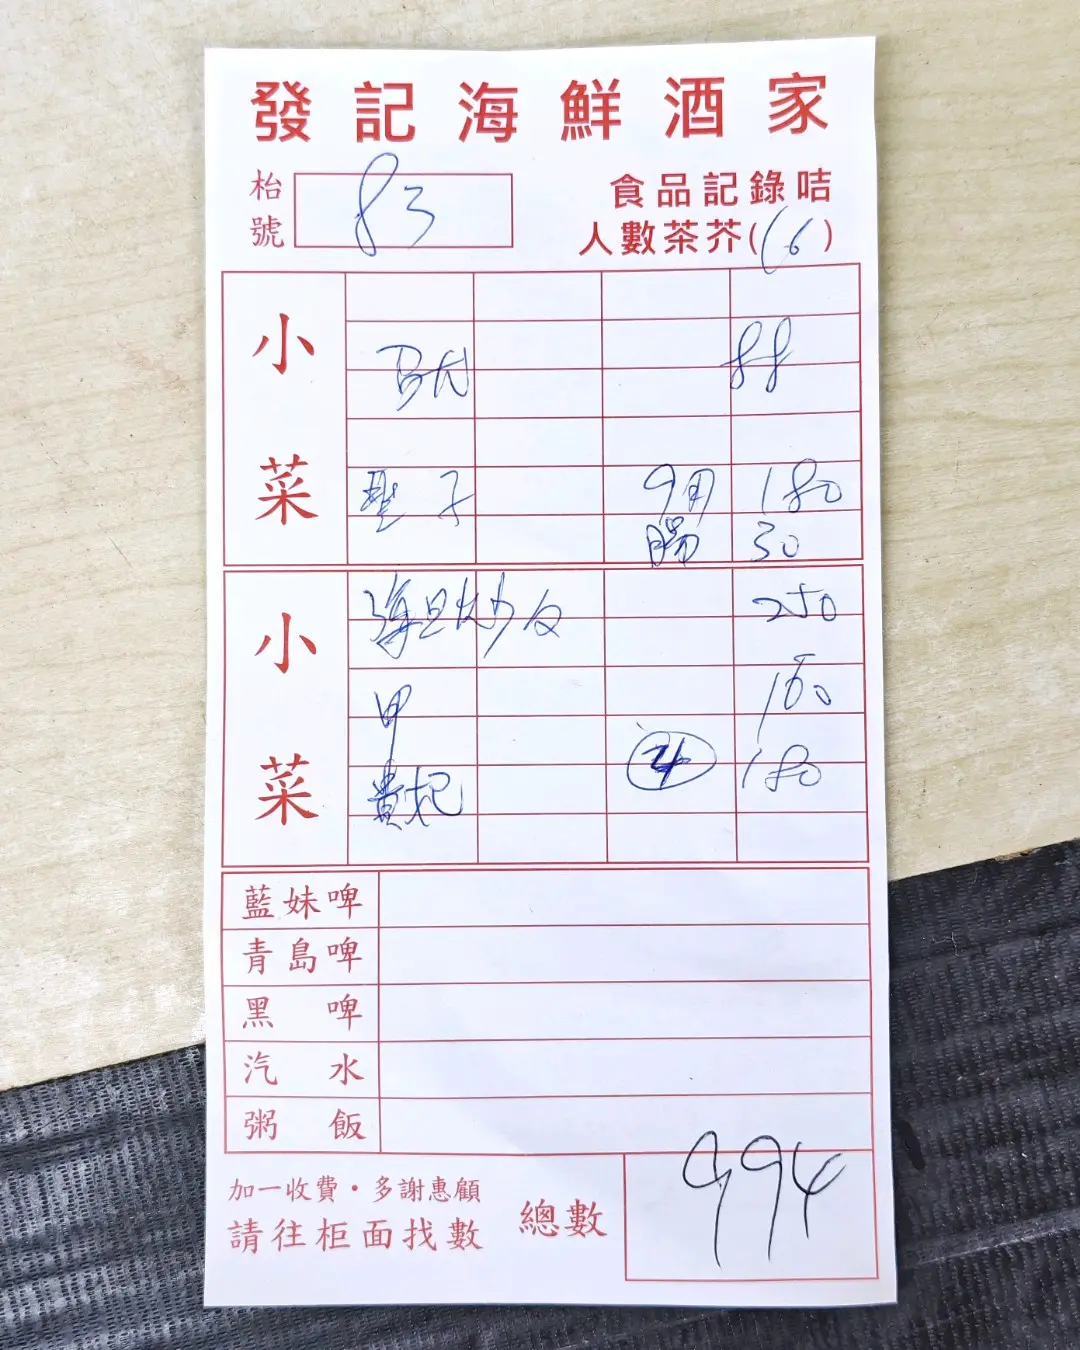 發記海鮮酒家
枱號 83
食品記錄咭
人數茶芥(6)
小菜
88
聖子 9月 180
腸 30
小菜
海旦炒反 250
甲 160
貴妃 4 180
藍妹啤
青島啤
黑啤
汽水
粥飯
加一收費・多謝惠顧
請往柜面找數
總數 994